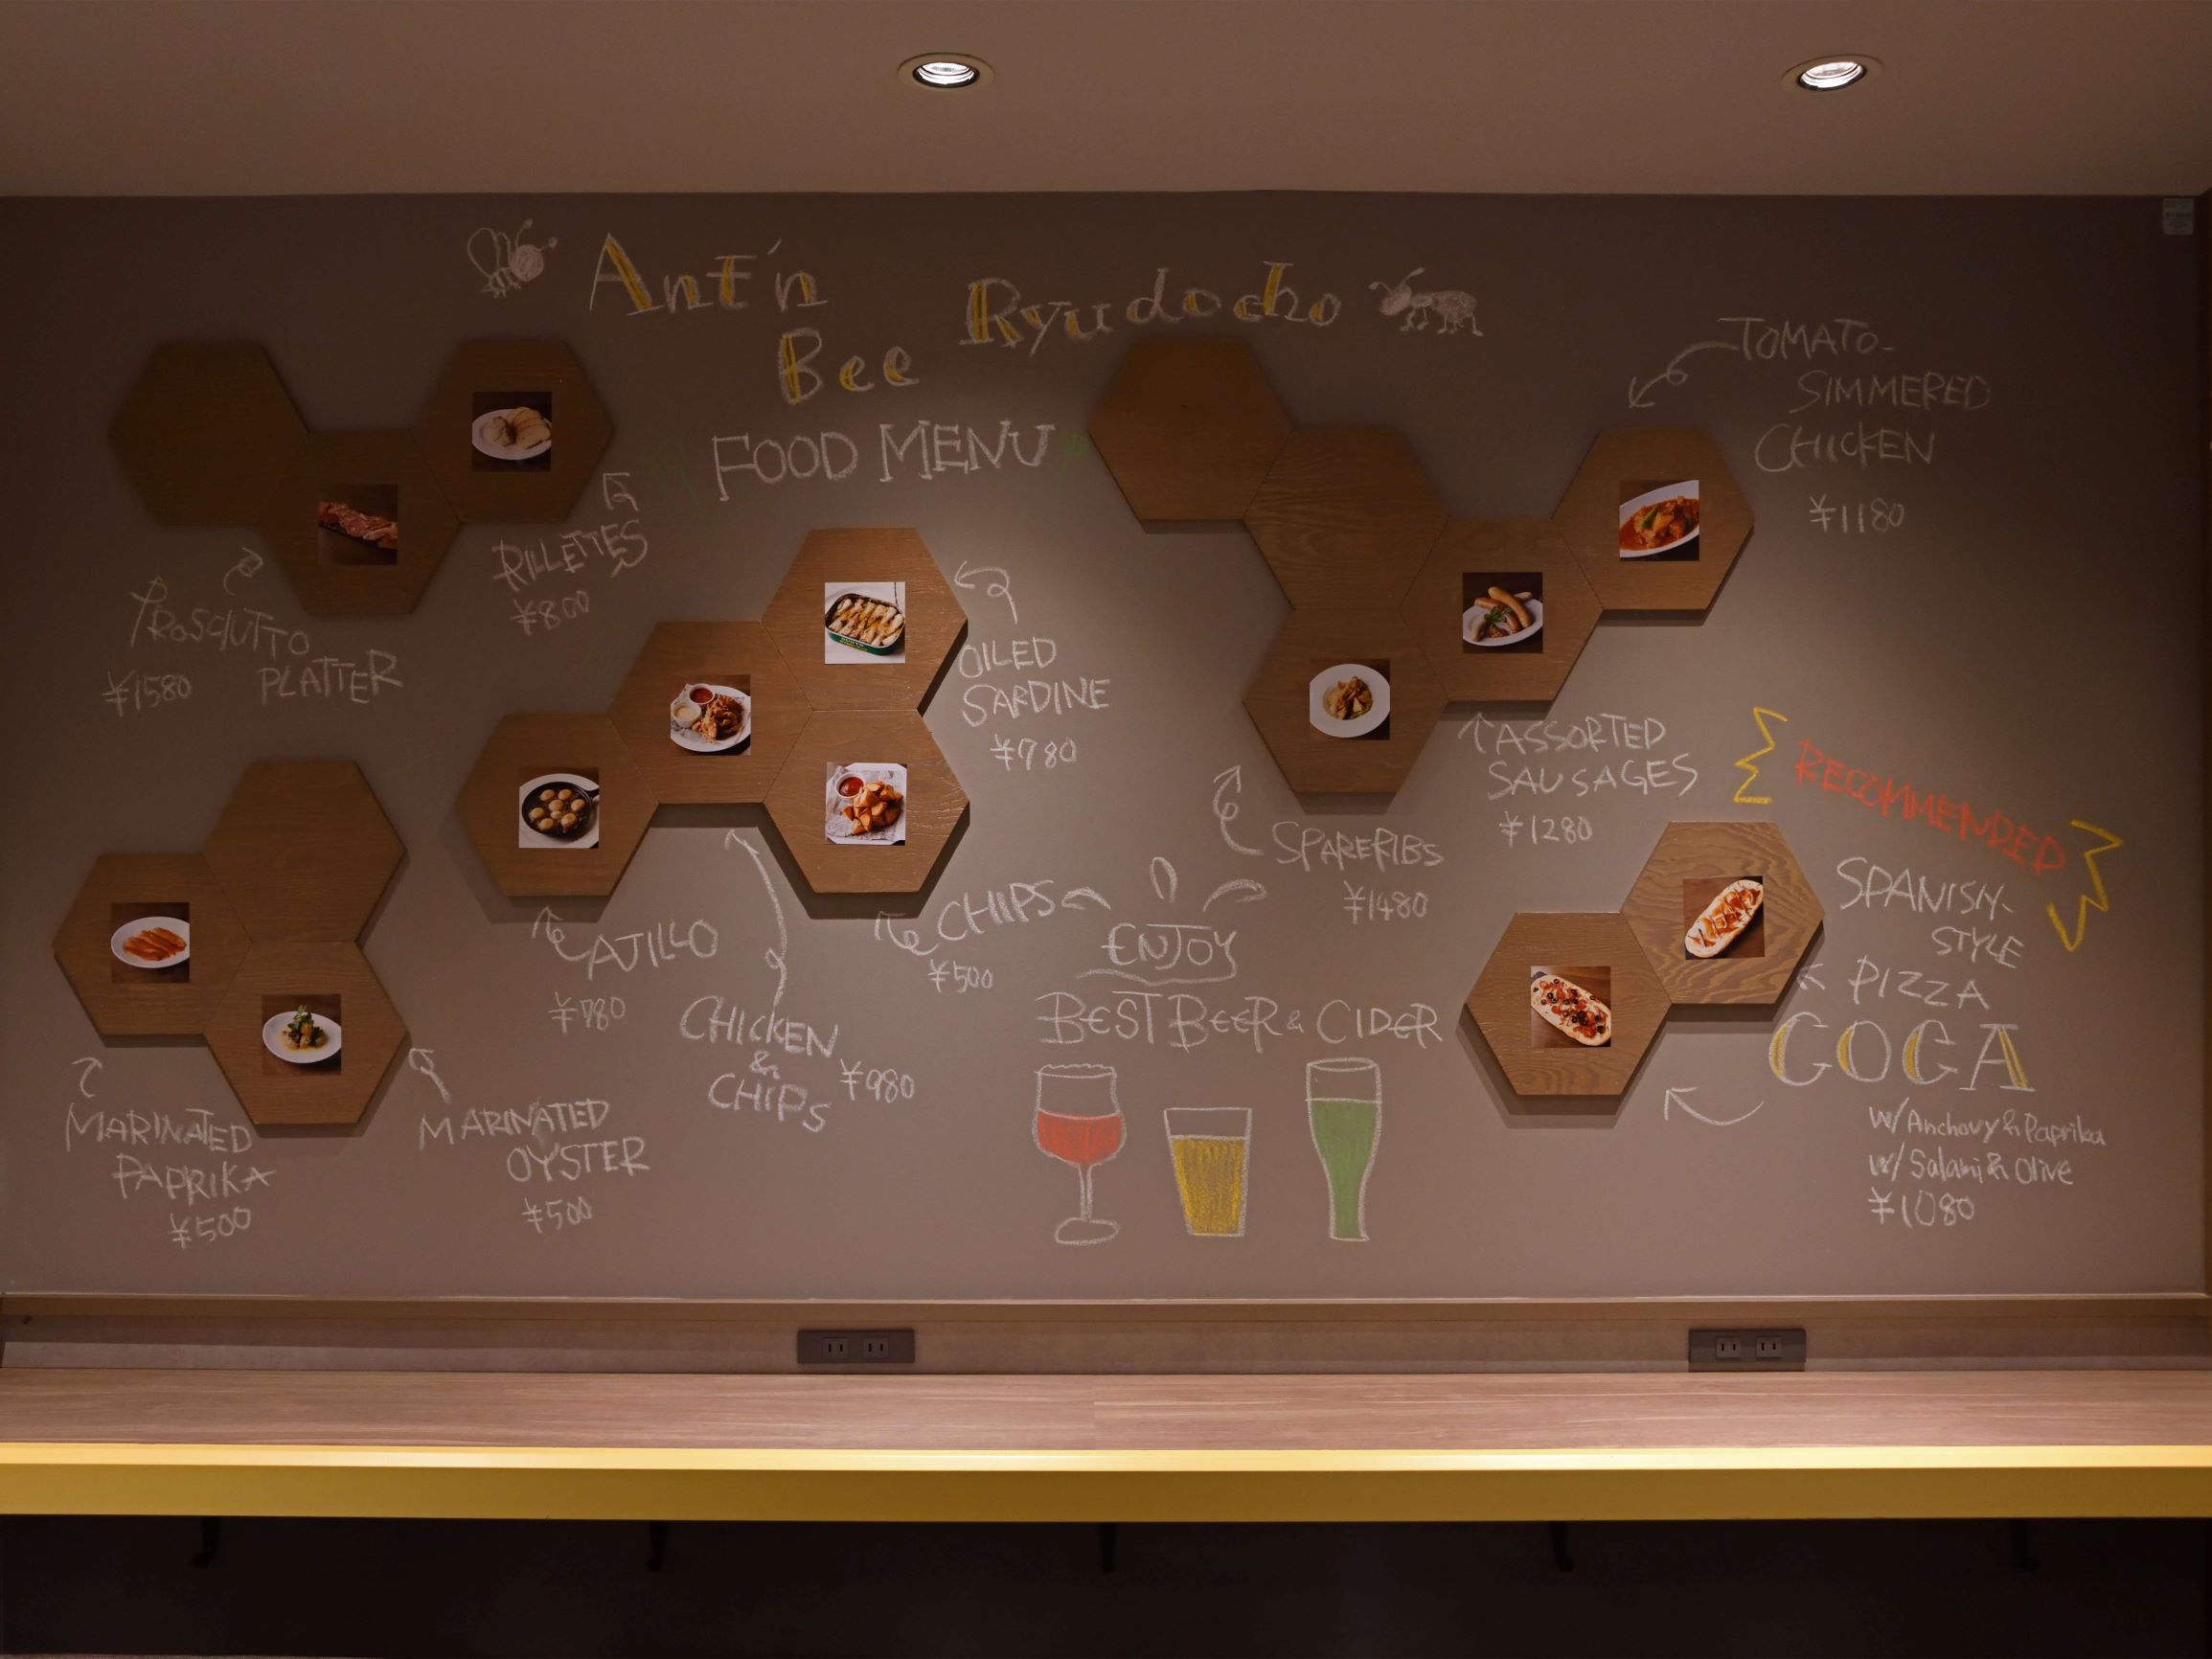 Ant'n
Bee
Ryudocho
FOOD MENU
PROSCIUTTO
PLATTER
¥1580
RILLETTES
¥800
OILED
SARDINE
¥780
TOMATO-
SIMMERED
CHICKEN
¥1180
ASSORTED
SAUSAGES
¥1280
SPARERIBS
¥1480
RECOMMENDED
SPANISH-
STYLE
PIZZA
COCA
w/Anchovy&Paprika
w/Salami&Olive
¥1080
AJILLO
¥780
CHICKEN
&
CHIPS
¥980
CHIPS
¥500
ENJOY
BEST BEER & CIDER
MARINATED
PAPRIKA
¥500
MARINATED
OYSTER
¥500